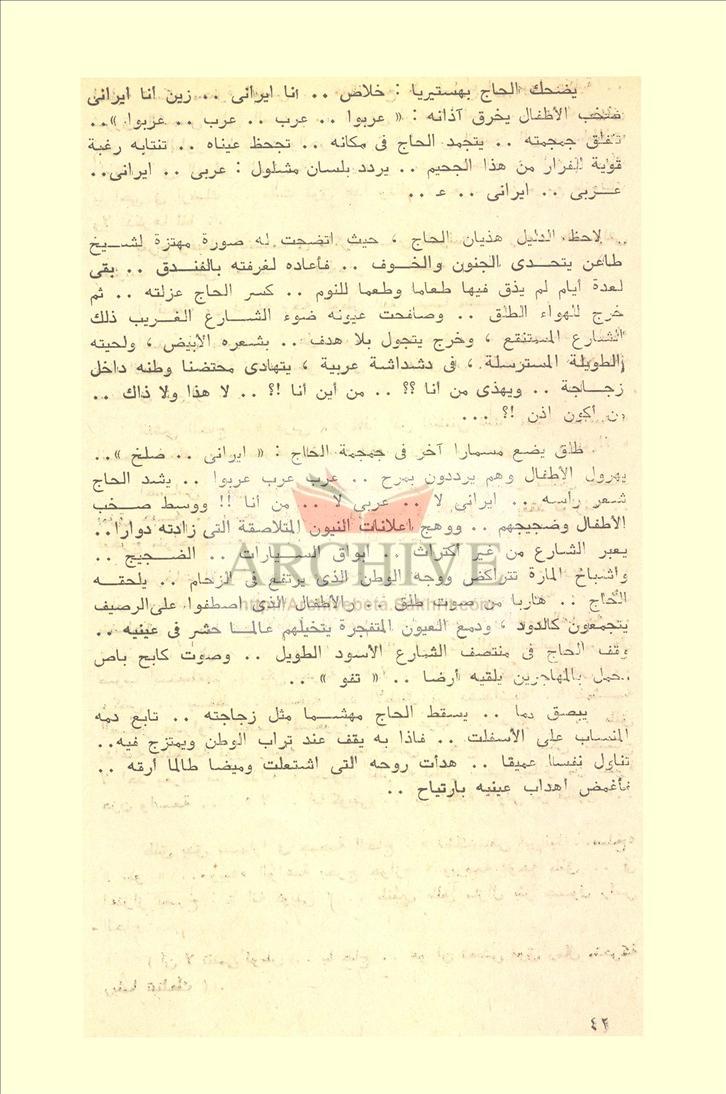 يضحك الحاج بهستيريا : خلاص .. أنا ايرانى .. زين أنا ايرانى
صخب الأطفال يخرق آذانه : « عربوا .. عرب .. عرب .. عربوا »..
تفلق جمجمته .. يتجمد الحاج فى مكانه .. تجحظ عيناه .. تنتابه رغبة
قوية للفرار من هذا الجحيم .. يردد بلسان مشلول : عربى .. ايرانى..
عــربى .. ايرانى .. عـ ..
.. لاحظ الدليل هذيان الحاج ، حيث اتضحت له صورة مهتزة لشــيخ
طاعن يتحــدى الجنون والخــوف .. فأعاده لغرفته بالفنــدق .. بقى
لعدة أيام لم يذق فيها طعاما وطعما للنوم .. كسر الحاج عزلته .. ثم
خرج للهواء الطلق .. وصافحت عيونه ضوء الشــارع الغــريب ذلك
الشارع المستنقع ، وخرج يتجول بلا هدف .. بشعره الأبيض ، ولحيته
الطويلة المسترسلة ، فى دشداشة عربية ، يتهادى محتضنا وطنه داخل
زجــاجة .. ويهذى من أنا ؟؟ .. من أين أنا !؟ .. لا هذا ولا ذاك ..
من أكون اذن !؟ ...
طلق يضع مسمارا آخر فى جمجمة الحاج : « ايرانى .. صلخ »..
يهرول الأطفال وهم يرددون بمرح .. عرب عرب عربوا .. يشد الحاج
شعر رأسه .. ايرانى لا .. عربى لا .. من أنا !! ووسط صــخب
الأطفال وضجيجهم .. ووهج اعلانات النيون المتلاصقة التى زادته دوارا..
يعبر الشارع من غير اكتراث .. أبواق الســيارات .. الضــجيج ..
وأشباح المارة تتراكض ووجه الوطن الذى يرتفع فى الزحام .. يلحقــه
الحاج .. هاربا من صوت طلق .. والأطفال الذى اصطفوا على الرصيف
يتجمعون كالدود ، ودمع العيون المتفجرة يتخيلهم عالمــا حشر فى عينيه ..
وقف الحاج فى منتصف الشارع الأسود الطويل .. وصوت كابح باص
محمل بالمهاجرين يلقيه أرضا .. « تفو » ..
يبصق دما .. يسقط الحاج مهشــما مثل زجاجته .. تابع دمه
المنساب على الأسفلت .. فاذا به يقف عند تراب الوطن ويمتزج فيه..
تناول نفسا عميقا .. هدأت روحه التى اشتعلت وميضا طالما أرقه ..
فأغمض أهداب عينيه بارتياح ..
ARCHIVE
٤٢